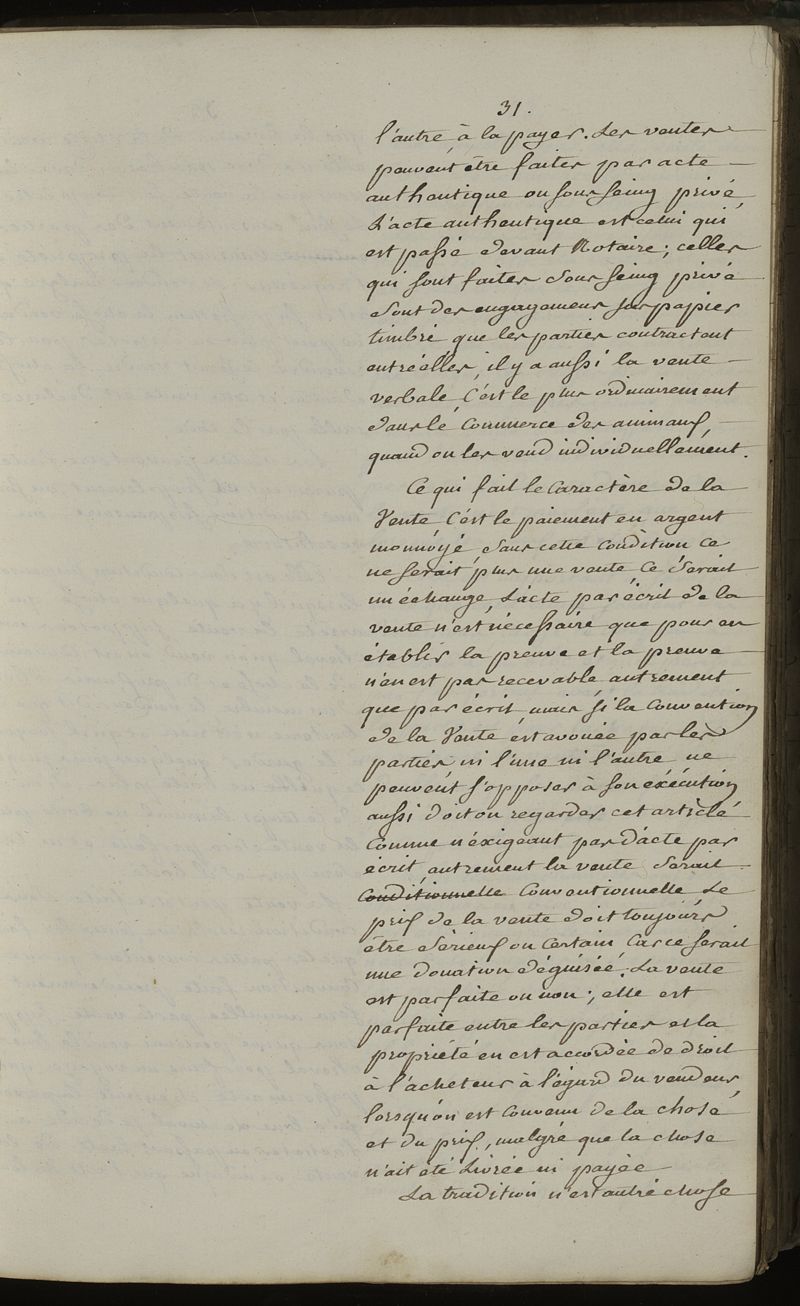 31.
l'autre à la payer. Les ventes
peuvent être faites par acte
authentique ou sous seing privé,
L'acte authentique est celui qui
est passé devant Notaire; celles
qui sont faites sous seing privé
sont des engagemens sur papier
timbré que les parties contractent
entr'elles, il y a aussi la vente
verbale c'est le plus ordinairement
dans le commerce des animaux,
quand on les vend individuellement.
Ce qui fait le caractère de la
Vente c'est le paiement en argent
monnoyé, sans cette condition ce
ne serait plus une vente ce serait
un échange, L'acte par écrit de la
vente n'est nécessaire que pour en
établir la preuve et la preuve
n'en est pas recevable autrement
que par écrit, mais si la Convention
de la Vente est avouée par les
parties ni l'une ni l'autre ne
peuvent s'opposer à son exécution
aussi doit on regarder cet article
comme n'éxigeant pas d'acte par
écrit, autrement la vente serait
conditionnelle Conventionnelle Le
prix de la vente doit toujours
être sérieux ou certain car ce serait
une donation déguisée. La vente
est parfaite ou non; elle est
parfaite entre les parties et la
propriété en est accordée de droit
à l'acheteur à l'égard du vendeur,
lorsqu'on est convenu de la chose
et du prix, malgré que la chose
n'ait été livrée ni payée
La tradition n'est autre chose